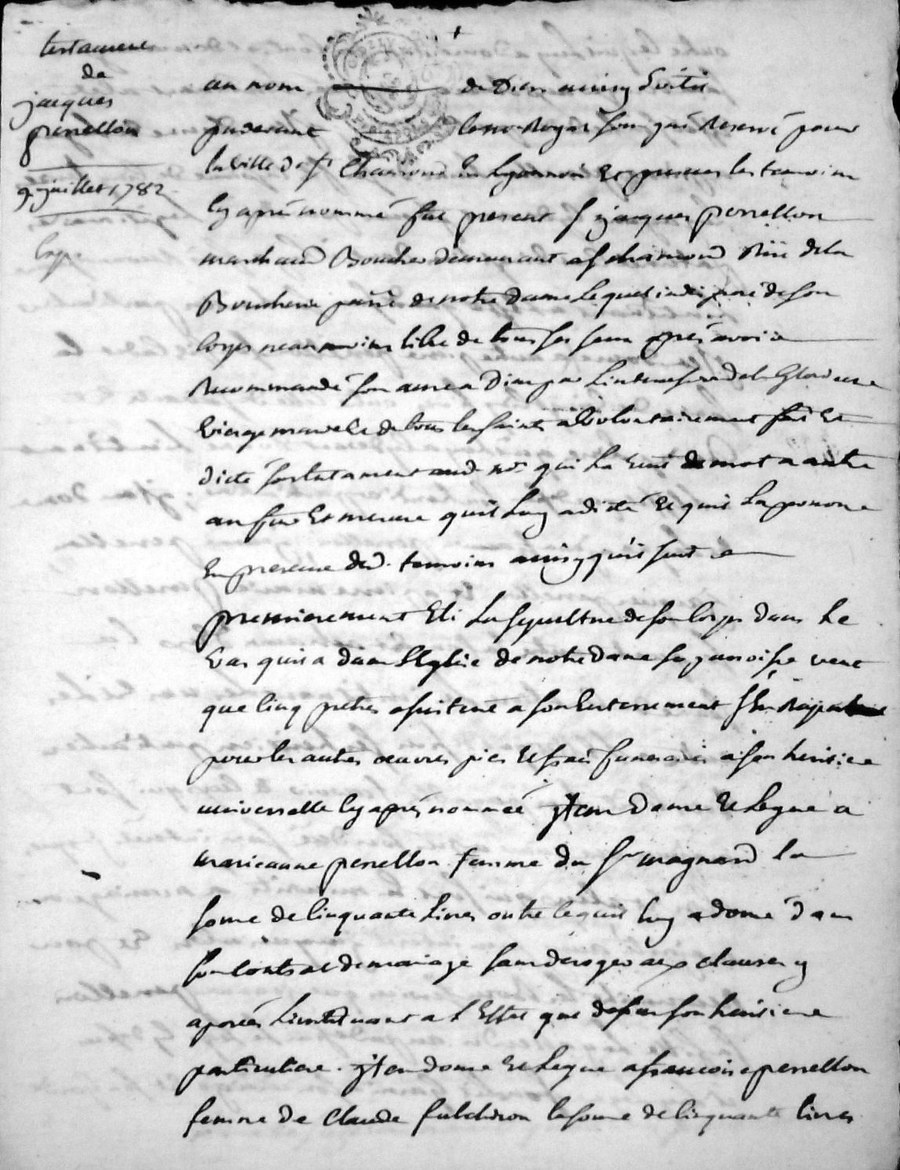 testament
de
jacques
perrellon
9 juillet 1782
au nom de Dieu ainsy soit il
pardevant le no.re Royal sousigné Reservé pour
la ville de st Chamond en Lyonnois Et presens les temoins
cy après nommé fut present sr jacques perrellon
marchand Boucher demeurant a st chamond Rüe de la
Boucherie parr.e de notre Dame lequel indisposé de son
corps neanmoins libre de tous ses sens après avoir
Recommandé son ame a Dieu par L'intercession de la Glorieuse
vierge marie Et de tous les saints a volontairement fait Et
dicté son testament aud. no.re qui L'a Ecrit de mot a autre
au fur Et mesure qu'il Luy a dicté Et
En presence desd. temoins ainsy qu'il suit
premierement Elit La sepulture de son Corps dans Le
vas qu'il a dans l'Eglise de notre Dame sa parroisse veut
que Cinq pretres assistent a son Enterrement s'En Raporte
pour les autres oeuvres pies Et frais funeraires a son heritiere
universelle cy après nommée jtem Donne Et Legue a
marieanne perrellon femme du sr magnard la
some de Cinquante Livres outre ce qu'il Luy a donné dans
son Contrat de mariage sans deroger aux clauses y
aposées L'instituant a l'Effet que dessus son heritiere
particuliere. jtem donne Et Legue a francoise perrellon
femme de Claude fulchiron la some de Cinquante livres